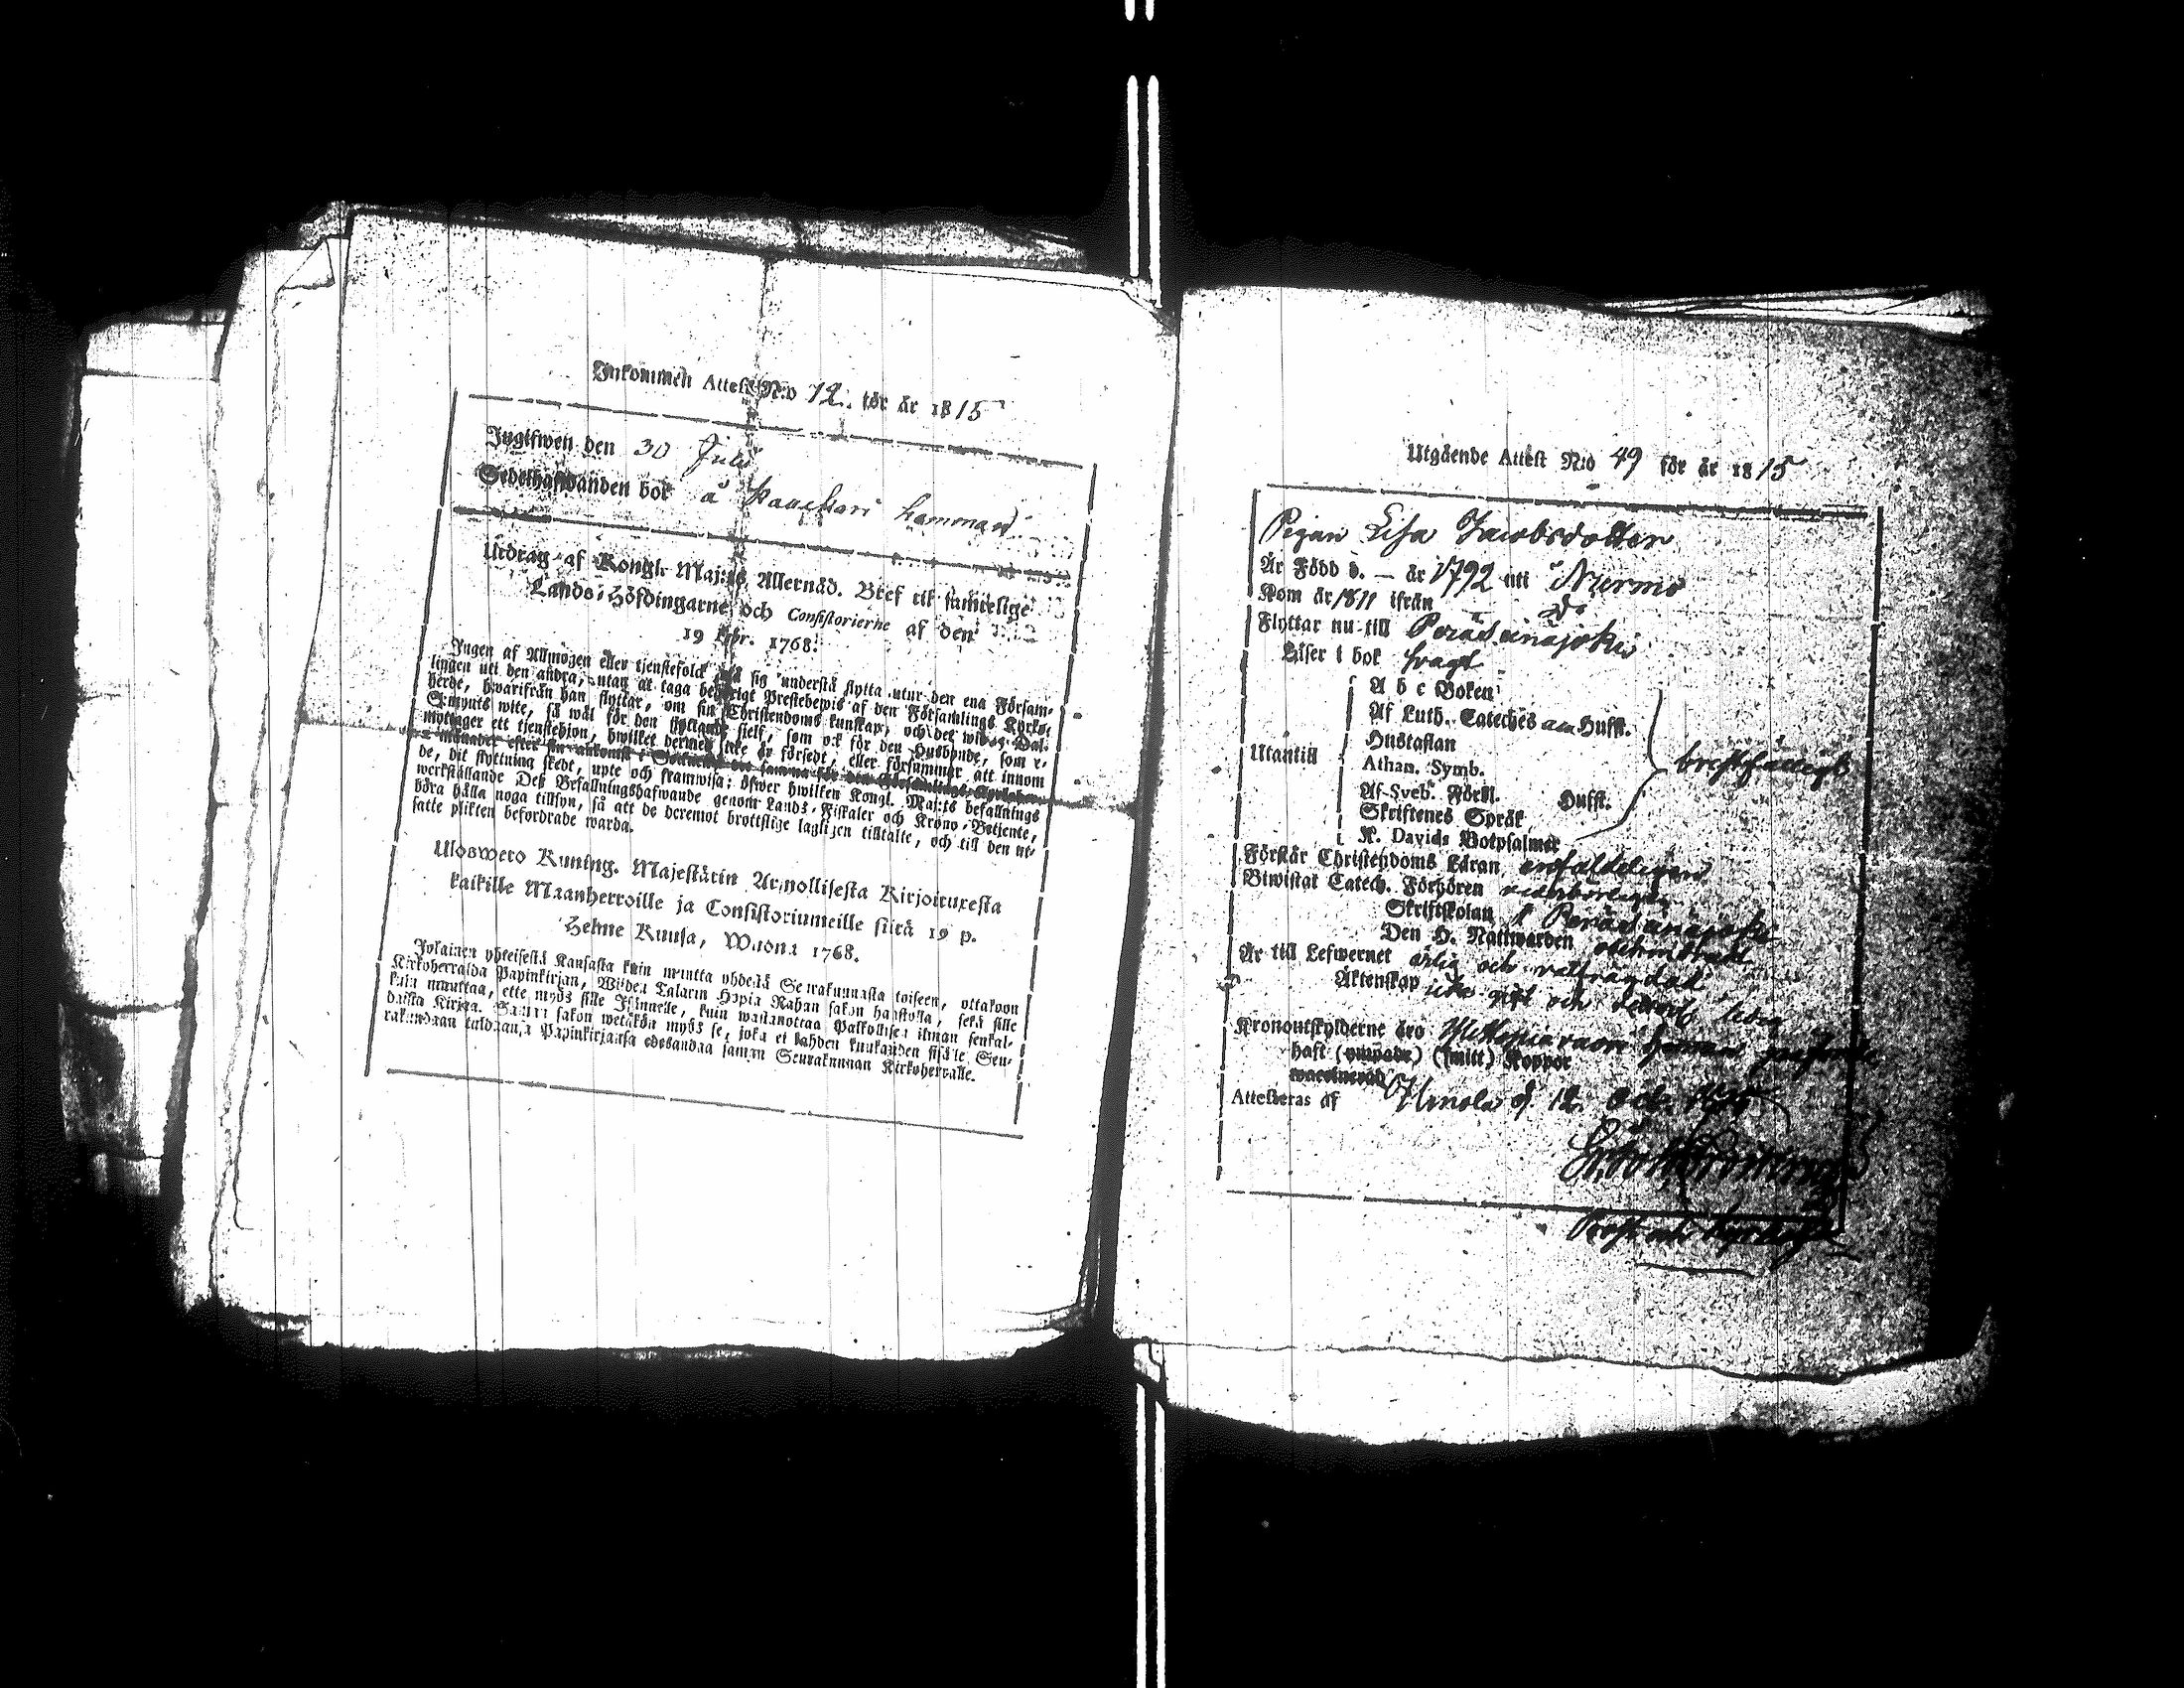 Inkommen Attest N:o 12. för år 1815
Ingifwen den 30 Julii
Sedelhafwanden bor å hemman
Utdrag af Kongl. Maj:ts Allernåd. Bref til samtelige
Lands-Höfdingarne och Consistorierne af den
19 1768.
Ingen af Allmogen eller tjenstefolck må sig understå flytta utur den ena Försam-
lingen uti den andra, utan at taga behörigt Prestebewis af den Församlings Kyrko-
herde, hwarifrån han flyttar, om sin Christendoms kunskap, och det wid 10 Dal.
S:mynts wite, så wäl för den flyttande sjelf, som ock för den Husbonde, som e-
mottager ett tjenstehjon, hwilket dermed icke är försedt, eller försummar att innom
2 månader efter sin ankomst i Socknen det samma för den Församlings Kyrkoher-
de, dit flyttning skedt, upte och framwisa; öfwer hwilken Kongl. Maj:ts befallnings
werkställande Deß Befallningshafwande genom Lands-Fiskaler och Krono-Betjente,
böra hålla noga tillsyn, så att de deremot brottslige lagligen tilltalte, och till den ut-
satte plikten befordrade warda.
Ulosweto Kuning. Majestätin Armollisesta Kirjoituxesta
kaikille Maanherroille ja Consistoriumeille siitä 19 p.
Helme Kuusa, Wuonna 1768.
Jokainen yhteisestä Kansasta kuin muutta yhdestä Seurakunnasta toiseen, ottakoon
Kirkoherralda Papinkirjan, Wiiden Talarin Hopia Rahan sakon haastolla, sekä sille
kuin muuttaa, ette myös sille Isännelle, kuin wastanottaa Palkollisen ilman senkal-
daista Kirjaa. Saman sakon wetäkön myös se, joka ei kahden kuukauden sisälle Seu-
rakundaan tulduansa Papinkirjansa edesandaa saman Seurakunnan Kirkoherralle.
Utgående Attest N:o 49 för år 1815
Pigan Lisa Jacobsdotter
Är Född d. — år 1792 uti Nurmo
Kom år 1811 ifrån Do
Flyttar nu till Peräseinäjoki
Läser i bok svagt
Utantill
A b c Boken
Af Luth. Cateches Hufst.
Hustaflan
Athan. Symb.
Af Sveb. Förkl. Hufst.
Skriftenes Språk
K. Davids Botpsalmer
bristfälligt
Förstår Christendoms Läran enfaldeligen
Biwistat Catech. Förhören
Skriftskolan i Peräseinäjoki
Den H. Nattwarden
Är till Lefwernet ärlig och
Äktenskap icke gift och ledig
Kronoutskylderne äro hemman
haft (ympade) (smitt) Koppor
waccinerad
Attesteras af Ilmola d. 12 Oct. 1815
Prost och Kyrkoh.